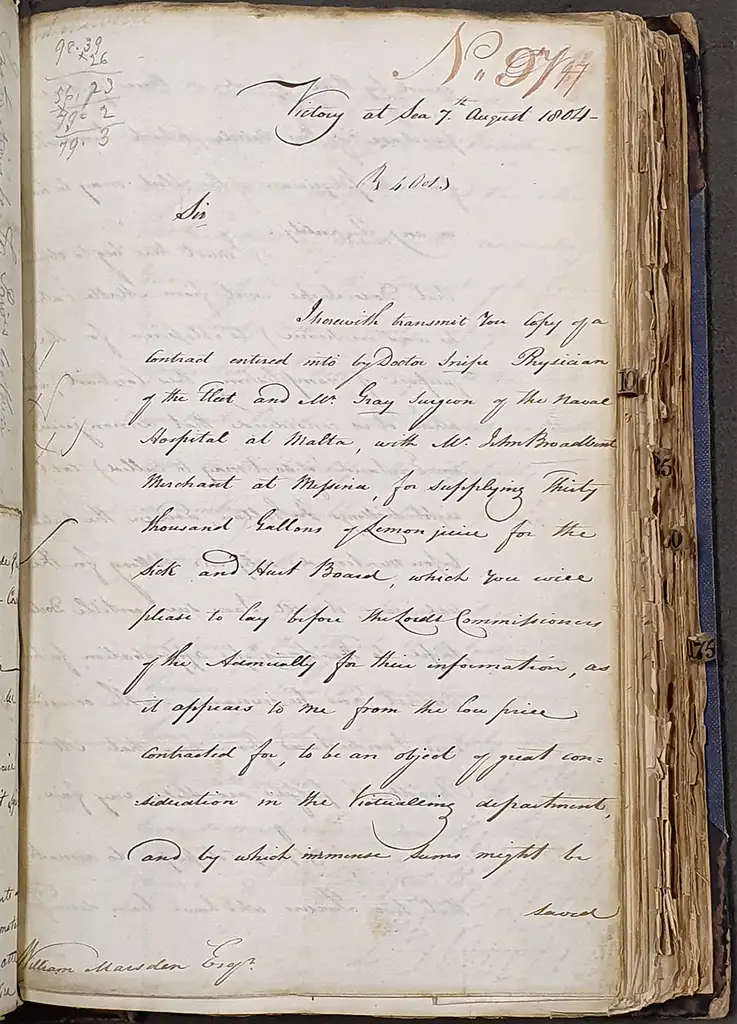 98.39
x26
56.23
79.2
79.3
No. 97/
Victory at Sea 7th August 1804-
R 4 Oct.
Sir
I herewith transmit You Copy of a
Contract entered into by Doctor Snipe Physician
of the Fleet and Mr. Gray Surgeon of the Naval
Hospital at Malta, with Mr. John Broadbent
Merchant at Messina, for supplying Thirty
thousand Gallons of Lemon juice for the
Sick and Hurt Board, which You will
please to lay before the Lords Commissioners
of the Admiralty for their information, as
it appears to me from the low price
Contracted for, to be an object of great con=
sideration in the Victualling department,
and by which immense sums might be
saved
William Marsden Esqr.
10
175